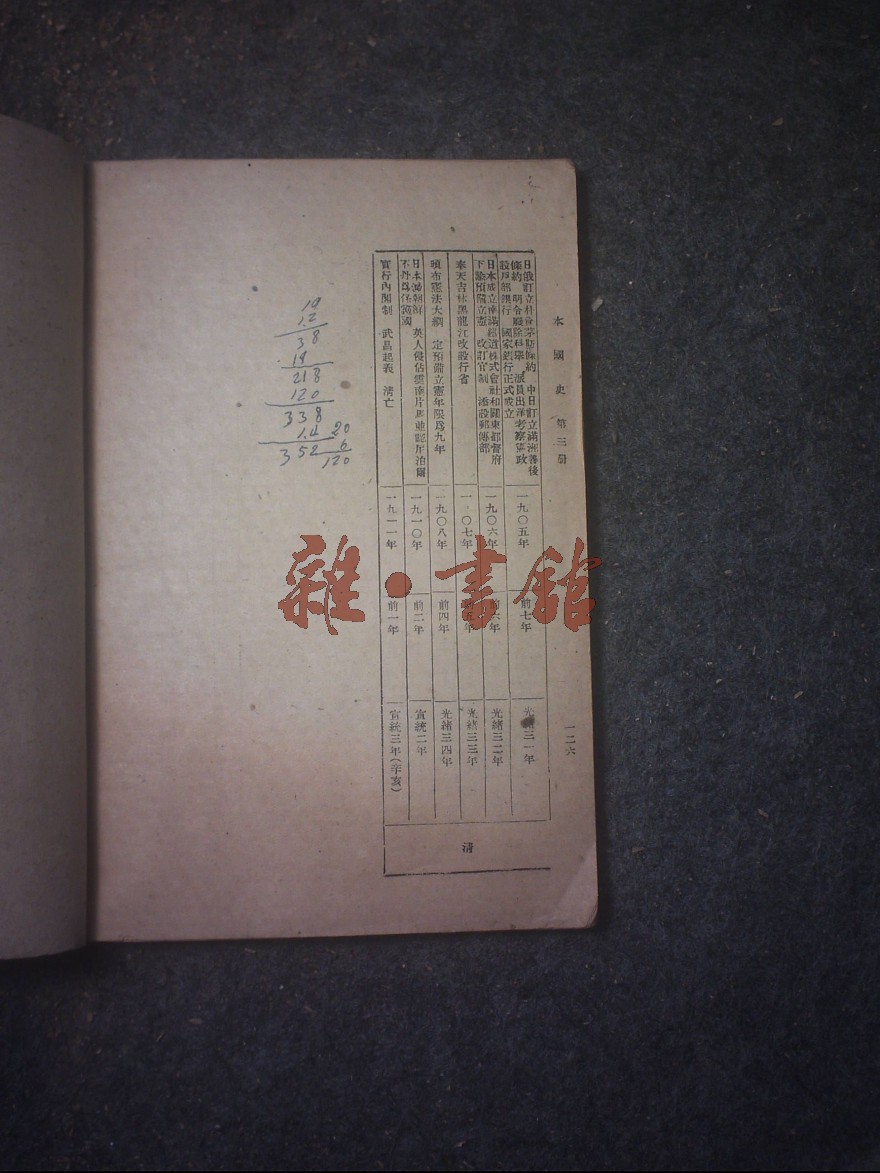 本國史 第三册
一二六
日俄訂立朴資茅斯條約 中日訂立滿洲善後
條約 明令廢除科舉 派員出洋考察憲政
設戶部銀行 國家銀行正式成立
一九〇五年
前七年
光緒三一年
日本成立南滿鐵道株式會社和關東都督府
下詔預備立憲 改訂官制 添設郵傳部
一九〇六年
前六年
光緒三二年
奉天吉林黑龍江改設行省
一 〇七年
前五年
光緒三三年
頒布憲法大綱 定預備立憲年限爲九年
一九〇八年
前四年
光緒三四年
日本 朝鮮 英人侵佔雲南片馬並認 泊爾
不丹爲保護國
一九一〇年
前二年
宣統二年
實行內閣制 武昌起義 淸亡
一九一一年
前一年
宣統三年(辛亥)
淸
19
12
38
19
218
120
338
14
352
20
6
120
雜·書館